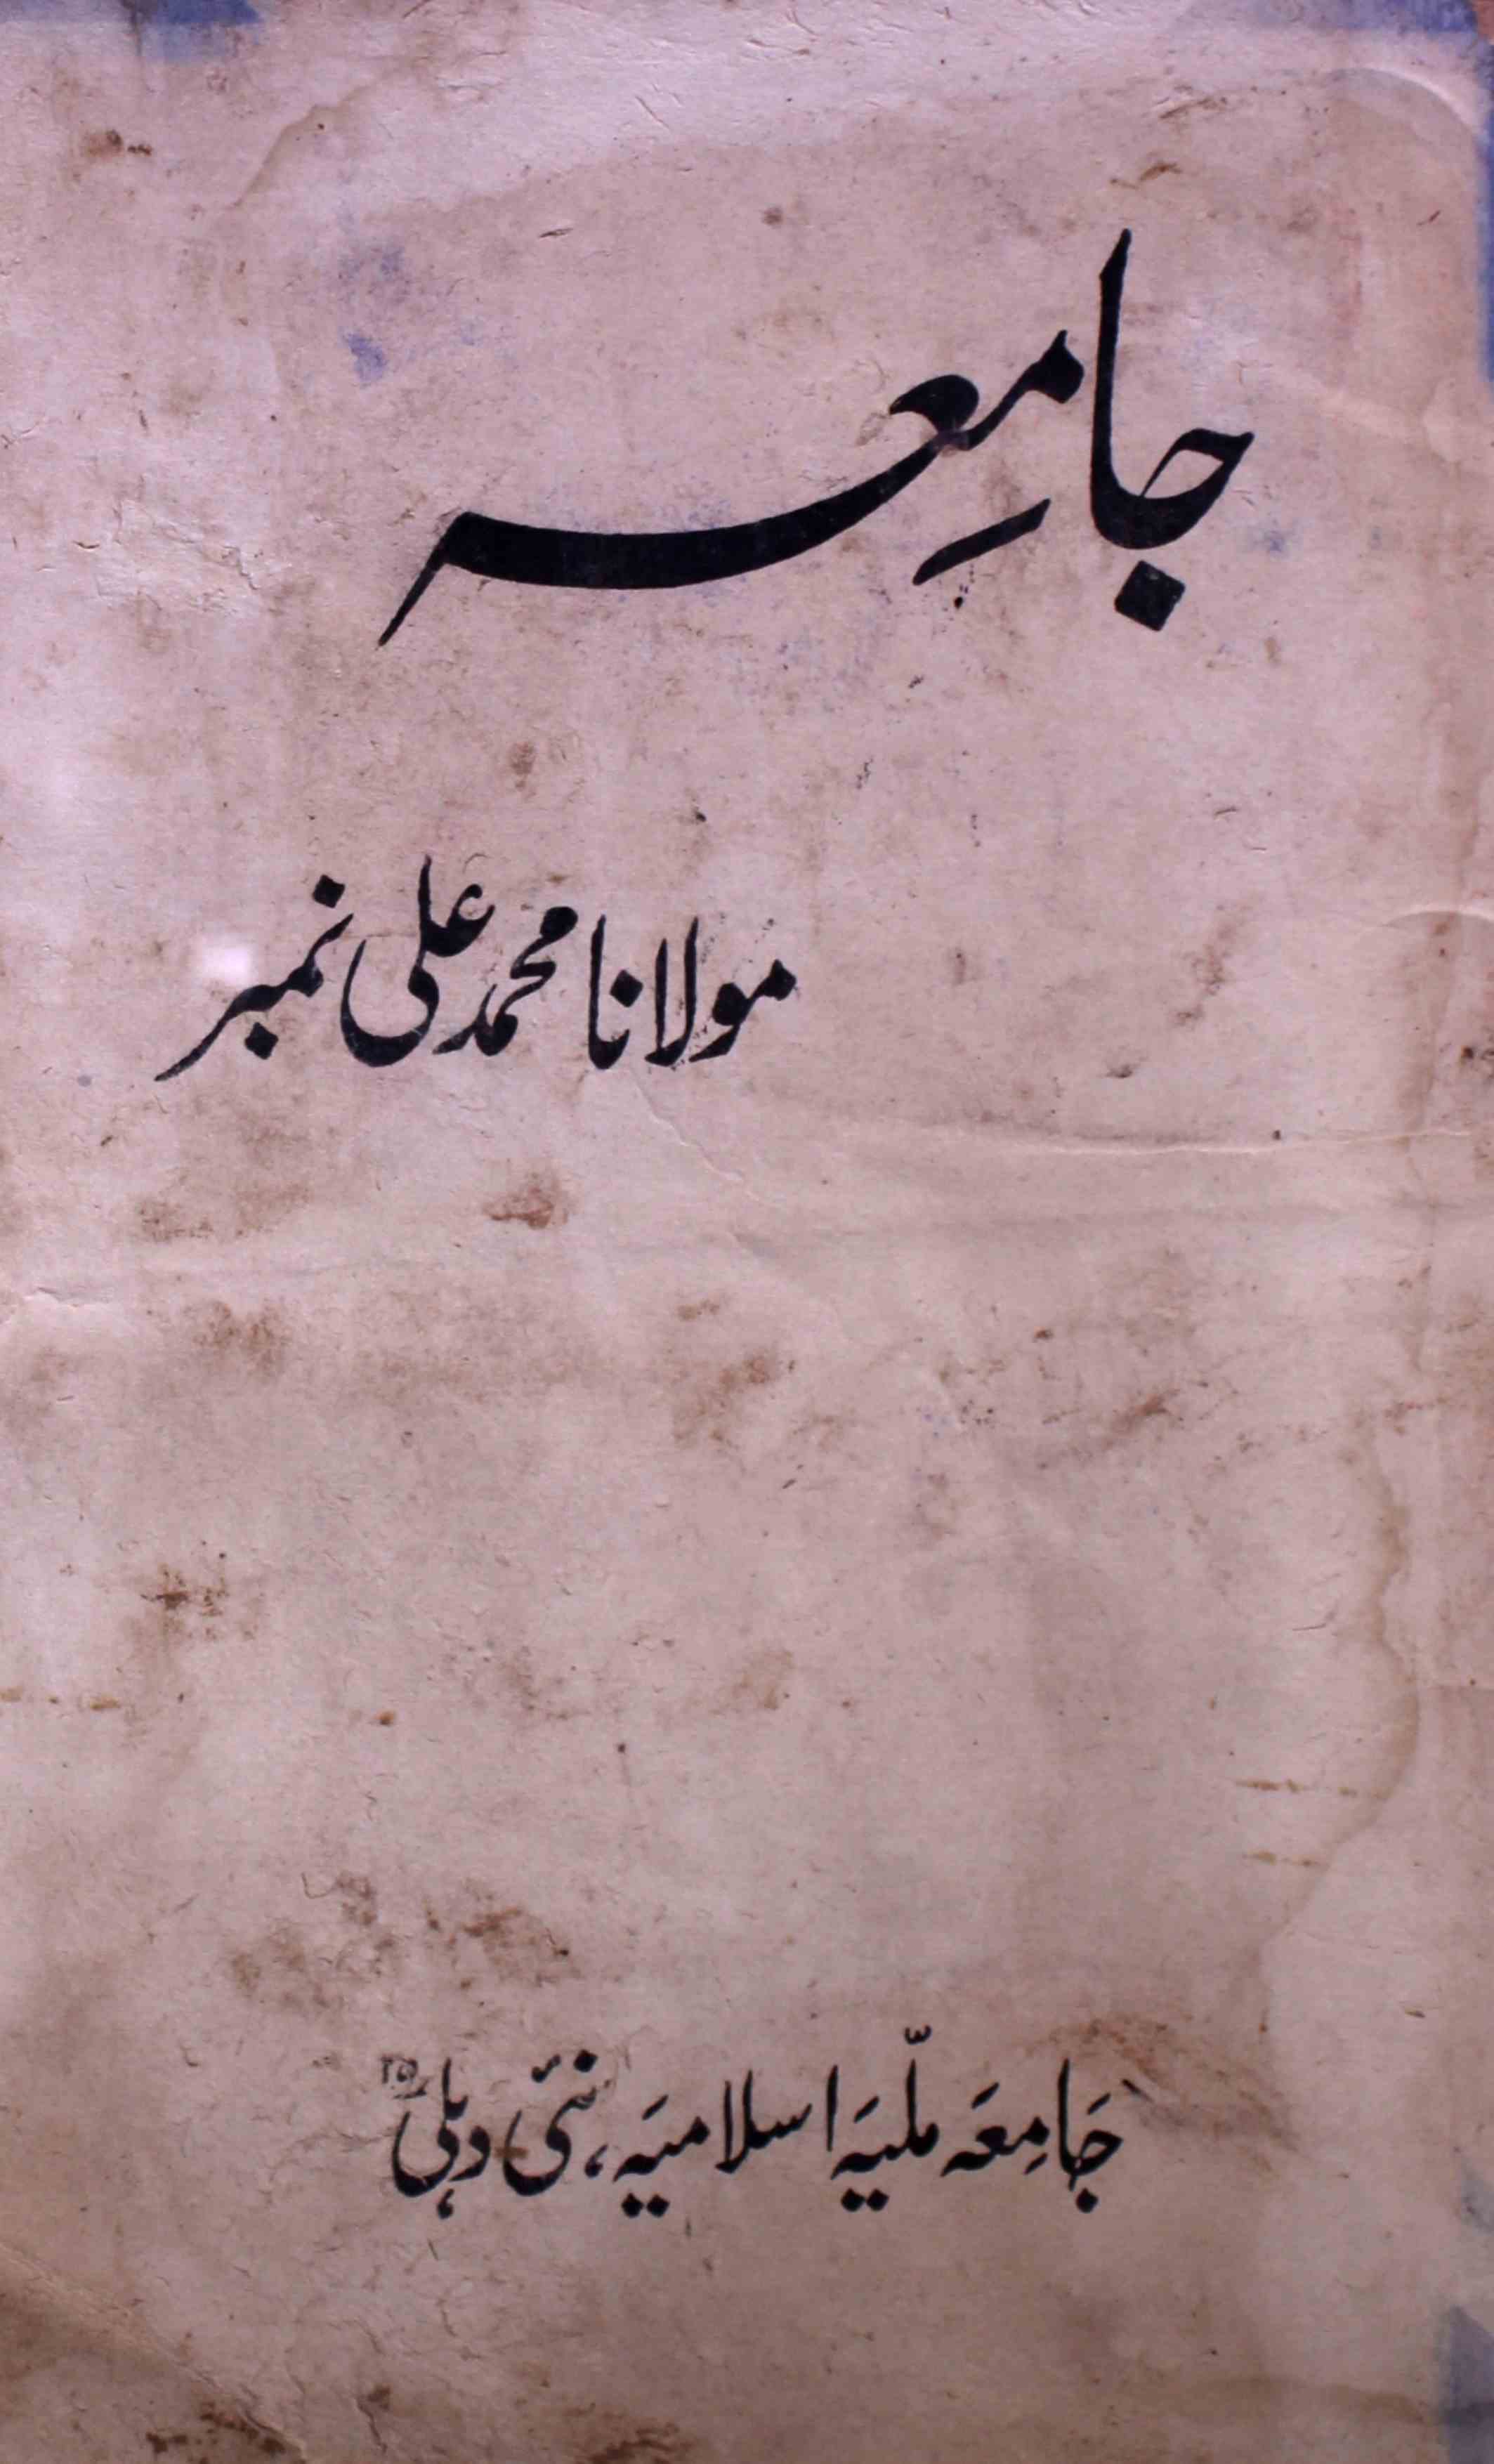 جامِعہ
مولانا محمد علی نمبر
جَامِعَہ ملّیَہ اسلامیَہ، نئی دہلی ۲۵